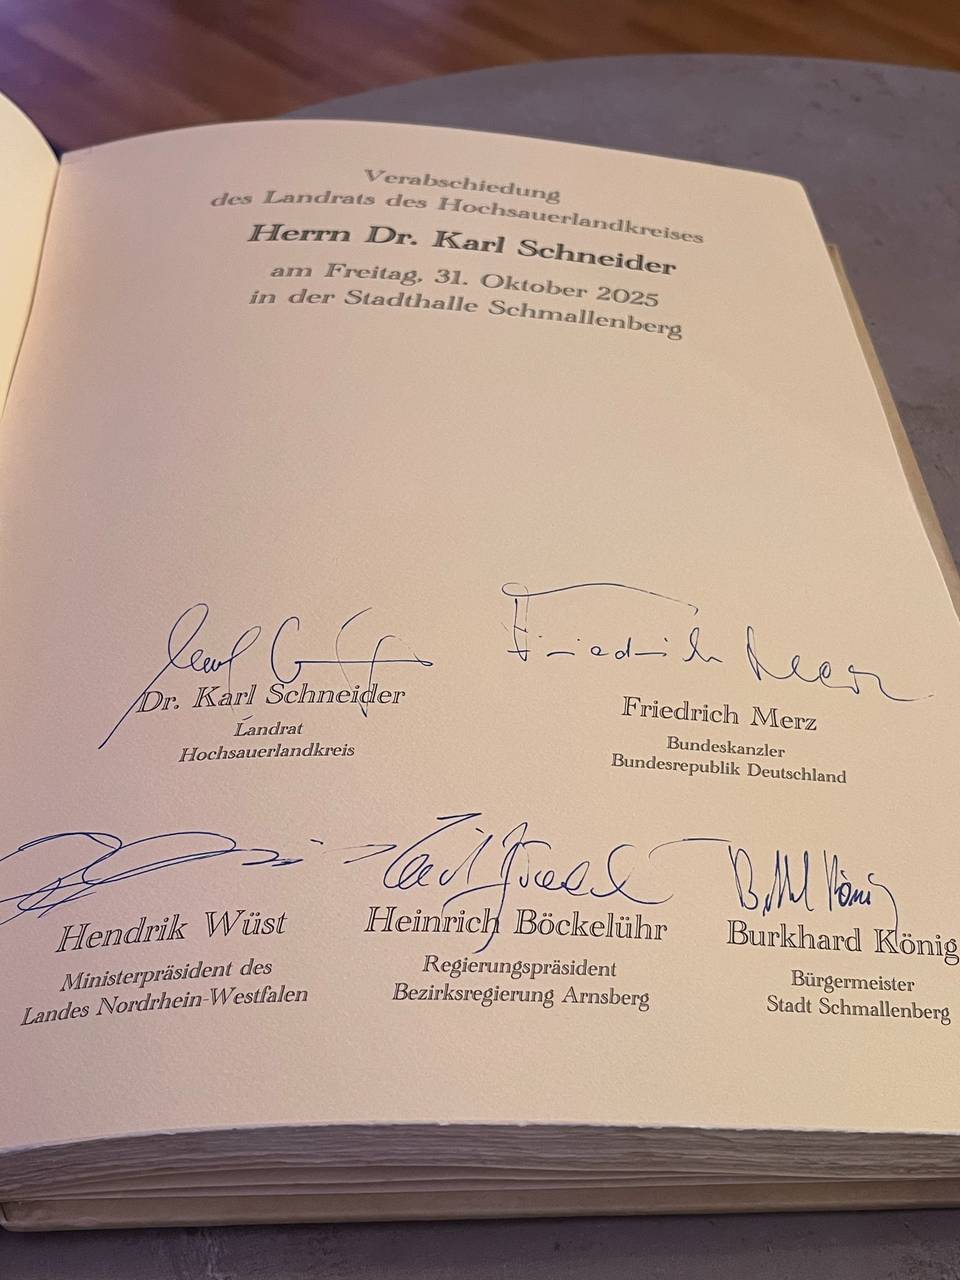 Verabschiedung
des Landrats des Hochsauerlandkreises
Herrn Dr. Karl Schneider
am Freitag, 31. Oktober 2025
in der Stadthalle Schmallenberg
Friedrich Merz
Dr. Karl Schneider
Landrat
Hochsauerlandkreis
Friedrich Merz
Bundeskanzler
Bundesrepublik Deutschland
König
Hendrik Wüst
Ministerpräsident des
Landes Nordrhein-Westfalen
Heinrich Böckelühr
Regierungspräsident
Bezirksregierung Arnsberg
Burkhard König
Bürgermeister
Stadt Schmallenberg